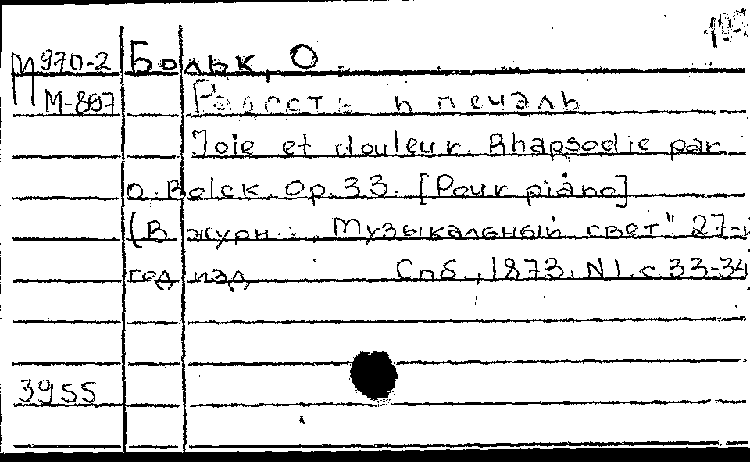 П970-2 Больк, О.
М-897 Радость и печаль
Joie et douleur. Rhapsodie par
O. Bolck. Op. 33. [Pour piano]
(В журн.: „Музыкальный свет" 27-й
год изд. Спб., 1873. N1. с 33-34
3955